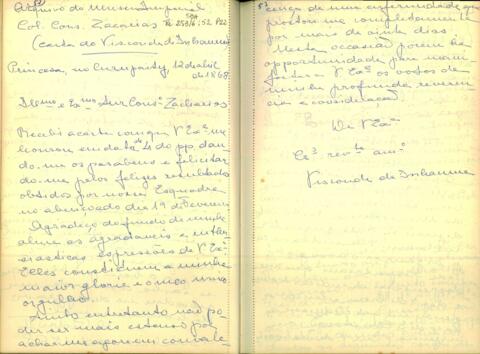 Arquivo do Museu Imperial
Col. Cons. Zacarias
(Carta do Visconde de Inhauma)
Princesa, no Curupaity, 12 de abril
de 1868.
Illmo e Exmo Snr Cons. Zacharias
Recebi a carta com que V Exa me
honrou em data de 4 do pp. dan-
do-me os parabens e felicitan-
do-me pelos felizes resultados
obtidos por nossa Esquadra
no abençoado dia 19 de Fevereiro
Agradeço do fundo de minha
alma as agradaveis e enthu-
siasticas expressões de V Exa
Elles constituem a minha
maior gloria e o meu maior
orgulho.
Sinto entretanto não po-
der ser mais extenso por
achar-me agora em convale-
cença de uma enfermidade que
prostou-me completamente
por mais de vinte dias
Nesta occasião porem ha
opportunidade para mani-
festar a V Exa os votos de
minha profunda reveren-
cia e consideração
De V Exa
Visconde de Inhauma